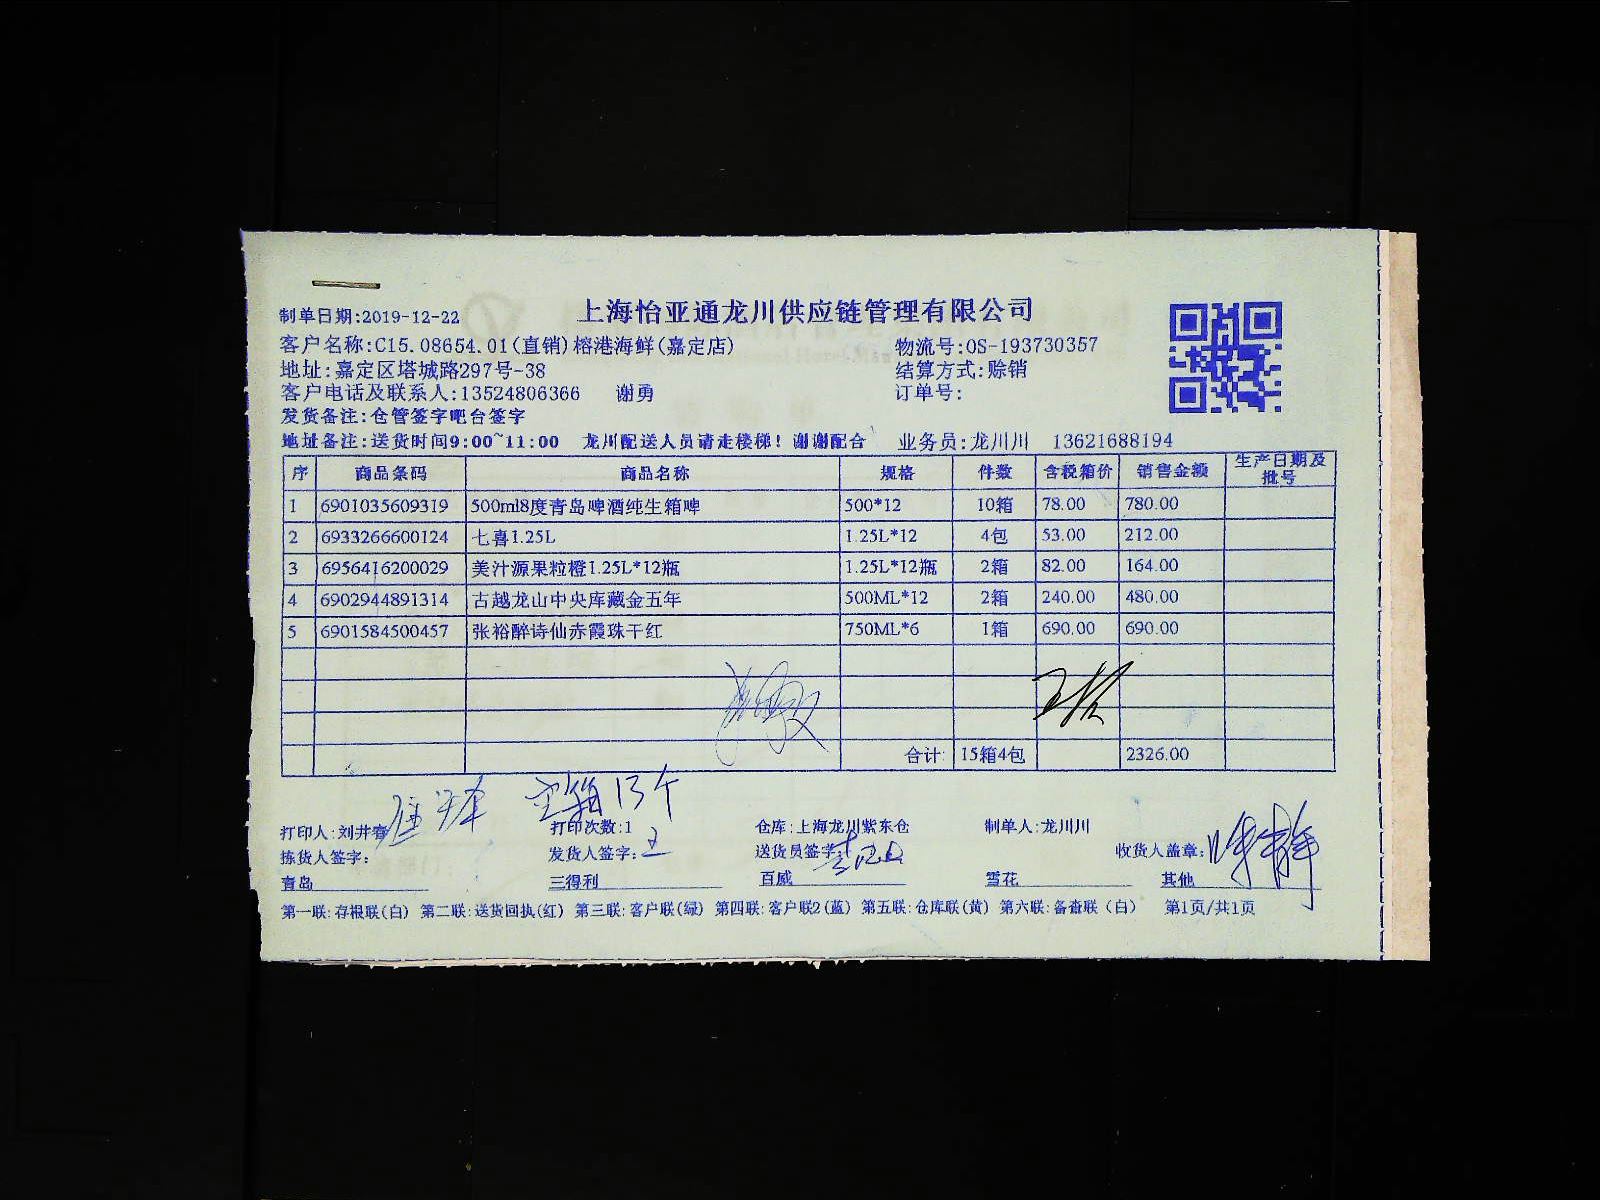 上海怡亚通龙川供应链管理有限公司
制单日期:2019-12-22
客户名称:C15.08654.01(直销)榕港海鲜(嘉定店) 物流号:OS-193730357
地址:嘉定区塔城路297号-38 结算方式:赊销
客户电话及联系人:13524806366 谢勇 订单号:
发货备注:仓管签字吧台签字
地址备注:送货时间9:00~11:00 龙川配送人员请走楼梯!谢谢配合 业务员:龙川川 13621688194
序 商品条码 商品名称 规格 件数 含税箱价 销售金额 生产日期及批号
1 6901035609319 500ml8度青岛啤酒纯生箱啤 500*12 10箱 78.00 780.00
2 6933266600124 七喜1.25L 1.25L*12 4包 53.00 212.00
3 6956416200029 美汁源果粒橙1.25L*12瓶 1.25L*12瓶 2箱 82.00 164.00
4 6902944891314 古越龙山中央库藏金五年 500ML*12 2箱 240.00 480.00
5 6901584500457 张裕醉诗仙赤霞珠干红 750ML*6 1箱 690.00 690.00
合计: 15箱4包 2326.00
空箱13个
打印人:刘井春 打印次数:1 仓库:上海龙川紫东仓 制单人:龙川川
拣货人签字: 发货人签字:王 送货员签字: 收货人盖章:
青岛 三得利 百威 雪花 其他
第一联:存根联(白) 第二联:送货回执(红) 第三联:客户联(绿) 第四联:客户联2(蓝) 第五联:仓库联(黄) 第六联:备查联(白) 第1页/共1页